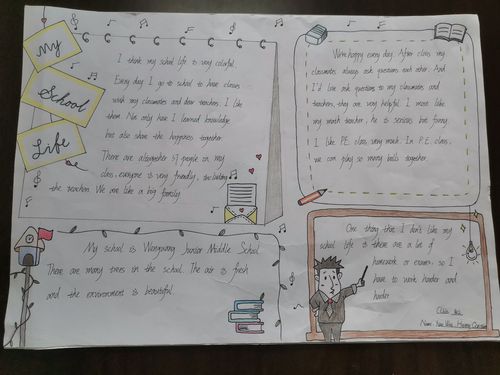 My
School
Life
I think my school life is very colorful.
Every day I go to school to have classes
with my classmates and dear teachers. I like
them. Not only have I learned knowledge
but also share the happiness together.
There are altogether 57 people in my
class, everyone is very friendly, including
the teachers. We are like a big family
We're happy every day. After class my
classmates always ask questions each other. And
I'd like ask questions to my classmates and
teachers, they are very helpful. I most like
my math teacher, he is serious but funny.
I like P.E. class very much. In P.E. class,
we can play so many balls together.
My school is Junior Middle School.
There are many trees in the school. The air is fresh
and the environment is beautiful.
One thing that I don't like my
school life is there are a lot of
homework or exams. so I
have to work harder and
harder
Class
Name: